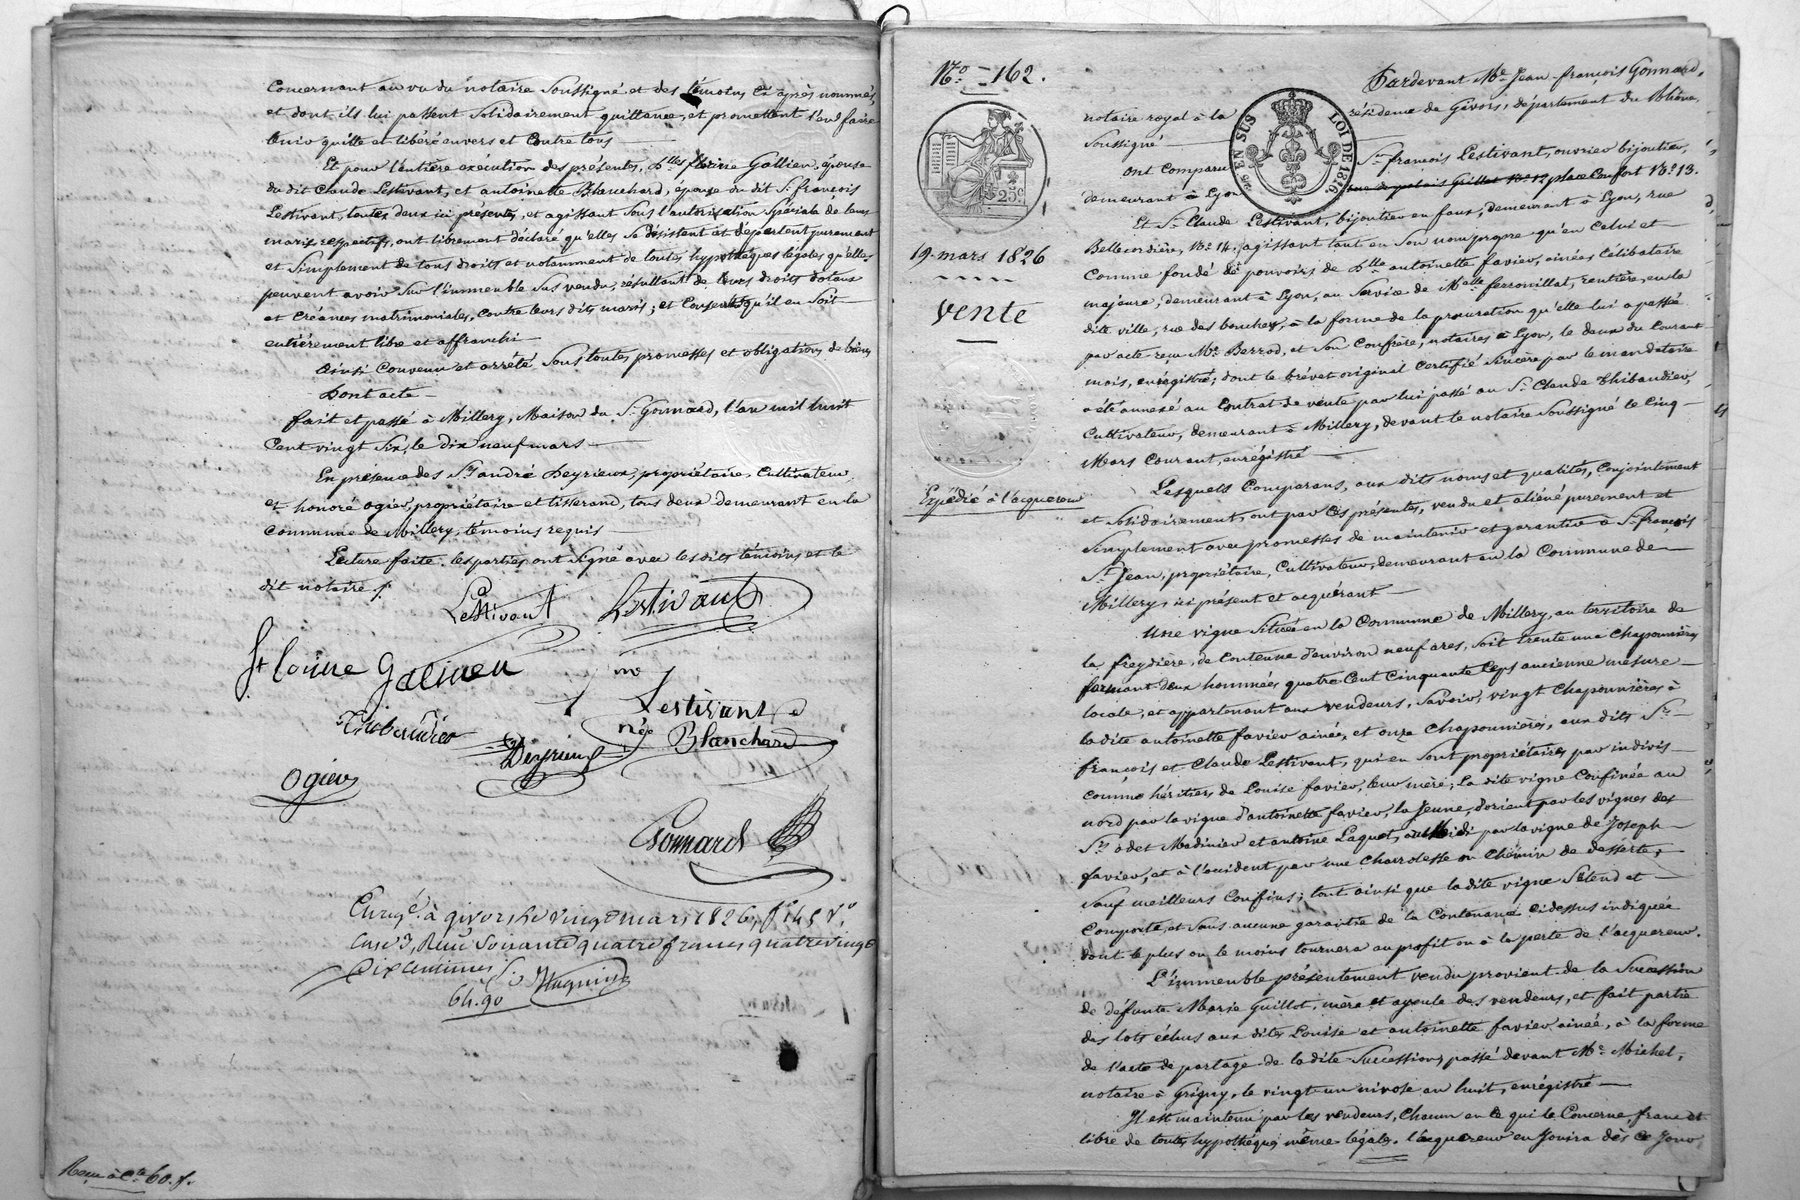 Concernant au vu du notaire soussigné et des témoins ci après nommés,
et dont ils lui passent solidairement quittance, et promettent l'en faire
tenir quitte et libéré envers et contre tous
Et pour l'entière exécution des présentes, Dlles florine Gallien, épouse
du dit Claude Lestivant, et antoinette Blanchard, épouse du dit Sr. françois
Lestivant, toutes deux ici présentes, et agissant sous l'autorisation spéciale de leurs
maris respectifs, ont librement déclaré qu'elles se désistent et départent purement
et simplement de tous droits et notamment de toutes hypothèques légales qu'elles
peuvent avoir sur l'immeuble sus vendu, résultant de leurs droits dotaux
et créances matrimoniales, contre leurs dits maris; et consentent qu'il en soit
entièrement libre et affranchi
ainsi convenu et arrêté sous toutes promesses et obligations de biens
Dont acte
fait et passé à Millery, Maison du Sr. Gonnard, l'an mil huit
Cent vingt six, le dix neuf mars
En présence des Srs andré Deyrieux, propriétaire, Cultivateur,
et honoré Ogier, propriétaire et tisserand, tous deux demeurant en la
Commune de Millery, témoins requis
Lecture faite, les parties ont signé avec les dits témoins et le
dit notaire /.
Lestivant Lestivant
florine Galien
Lestivant
née Blanchard
Thibaudier Deyrieux
Ogier
Gonnard
Enregé. à givors, le vingt mars 1826, fo 145 Vo
Case 3, Reçu soixante quatre francs quatre vingt
dix centimes
64.90
Reçu à Cte 60. f.
No. 162.
25c.
19. mars 1826
Vente
Expédié à l'acquereur
EN SUS LOI DE 1816.
Pardevant Me. Jean-françois Gonnard,
notaire royal à la résidence de Givors, département du Rhône,
soussigné
ont comparu Sr. françois Lestivant, ouvrier bijoutier,
demeurant à Lyon rue du palais Grillet No. 12 place Confort No. 13.
Et Sr. Claude Lestivant, bijoutier en faux, demeurant à Lyon, rue
Bellecordière, No. 14, agissant tant en son nom propre qu'en celui et
comme fondé de pouvoirs de Dlle antoinette favier, ainée, Célibataire
majeure, demeurant à Lyon, au service de Melle ferrouillat, rentière, en la
dite ville, rue des bouchers, à la forme de la procuration qu'elle lui a passée
par acte reçu Me. Berrod, et son Confrère, notaires à Lyon, le deux du courant
mois, enrégistré; dont le brévet original certifié sincère par le mandataire
a été annexé au Contrat de vente par lui passé au Sr. Claude Thibaudier,
Cultivateur, demeurant à Millery, devant le notaire soussigné le cinq
Mars courant, enrégistré
Lesquels Comparans, aux dits noms et qualités, conjointement
et solidairement, ont par ces présentes, vendu et aliéné purement et
simplement avec promesses de maintenir et garantir à Sr. françois
St. Jean, propriétaire, Cultivateur, demeurant en la Commune de
Millery, ici présent et acquérant
Une vigne située en la Commune de Millery, au territoire de
la freydière, de contenue d'environ neuf ares, soit trente une chaponnières
formant deux hommées quatre cent cinquante ceps ancienne mesure
locale, et appartenant aux vendeurs, savoir, vingt chaponnières à
la dite antoinette favier ainée, et onze chaponnières, aux dits Srs.
françois et Claude Lestivant, qui en sont propriétaires par indivis
comme héritiers de Louise favier, leur mère; la dite vigne confinée au
nord par la vigne d'antoinette favier, la jeune, d'orient par les vignes des
Srs odet Madinier et antoine Laquet, au Midi par la vigne de Joseph
favier, et à l'occident par une charolesse ou chemin de desserte;
sauf meilleurs confins; tout ainsi que la dite vigne s'étend et
comporte, et sans aucune garantie de la contenance cidessus indiquée
dont le plus ou le moins tournera au profit ou à la perte de l'acquereur.
L'immeuble présentement vendu provient de la succession
de défunte Marie Guillot, mère et ayeule des vendeurs, et fait partie
des lots échus aux dites Louise et antoinette favier ainée, à la forme
de l'acte de partage de la dite succession, passé devant Me. Michel,
notaire à Grigny, le vingt un nivose an huit, enrégistré
Il est maintenu par les vendeurs, chacun en ce qui le concerne, franc et
libre de toutes hypothèques, même légales. l'acquereur en jouira dès ce jour,